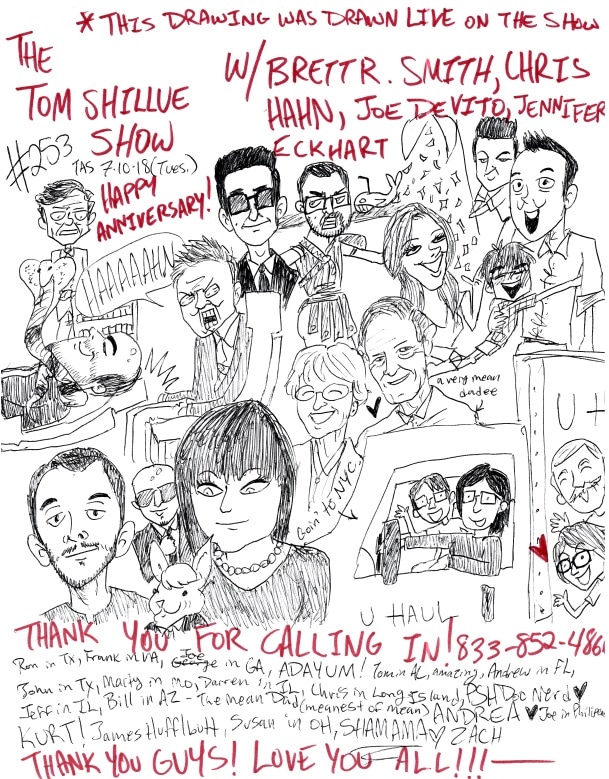 * THIS DRAWING WAS DRAWN LIVE ON THE SHOW
THE
TOM SHILLUE
SHOW
W/ BRETT R. SMITH, CHRIS
HAHN, JOE DEVITO, JENNIFER
ECKHART
#253
TAS 7-10-18 (Tues.)
HAPPY
ANNIVERSARY!
HAAAAAHN
a very mean
dadee
U H
Goin' to NYC!
U HAUL
THANK YOU FOR CALLING IN! 833-852-486
Ron in TX, Frank in VA, Joe in GA, ADAYUM! Tom in AL, amazing, Andrew in FL,
John in TX, Marty in MO, Darren in IL, Chris in Long Island, PSHDoc Nerd ♥
Jeff in IL, Bill in AZ - The Mean Dad (meanest of mean) ANDREA ♥ Joe in
KURT! James Hufflbutt, Susan in OH, SHAMAMA ♥ ZACH
THANK YOU GUYS! LOVE YOU ALL!!!